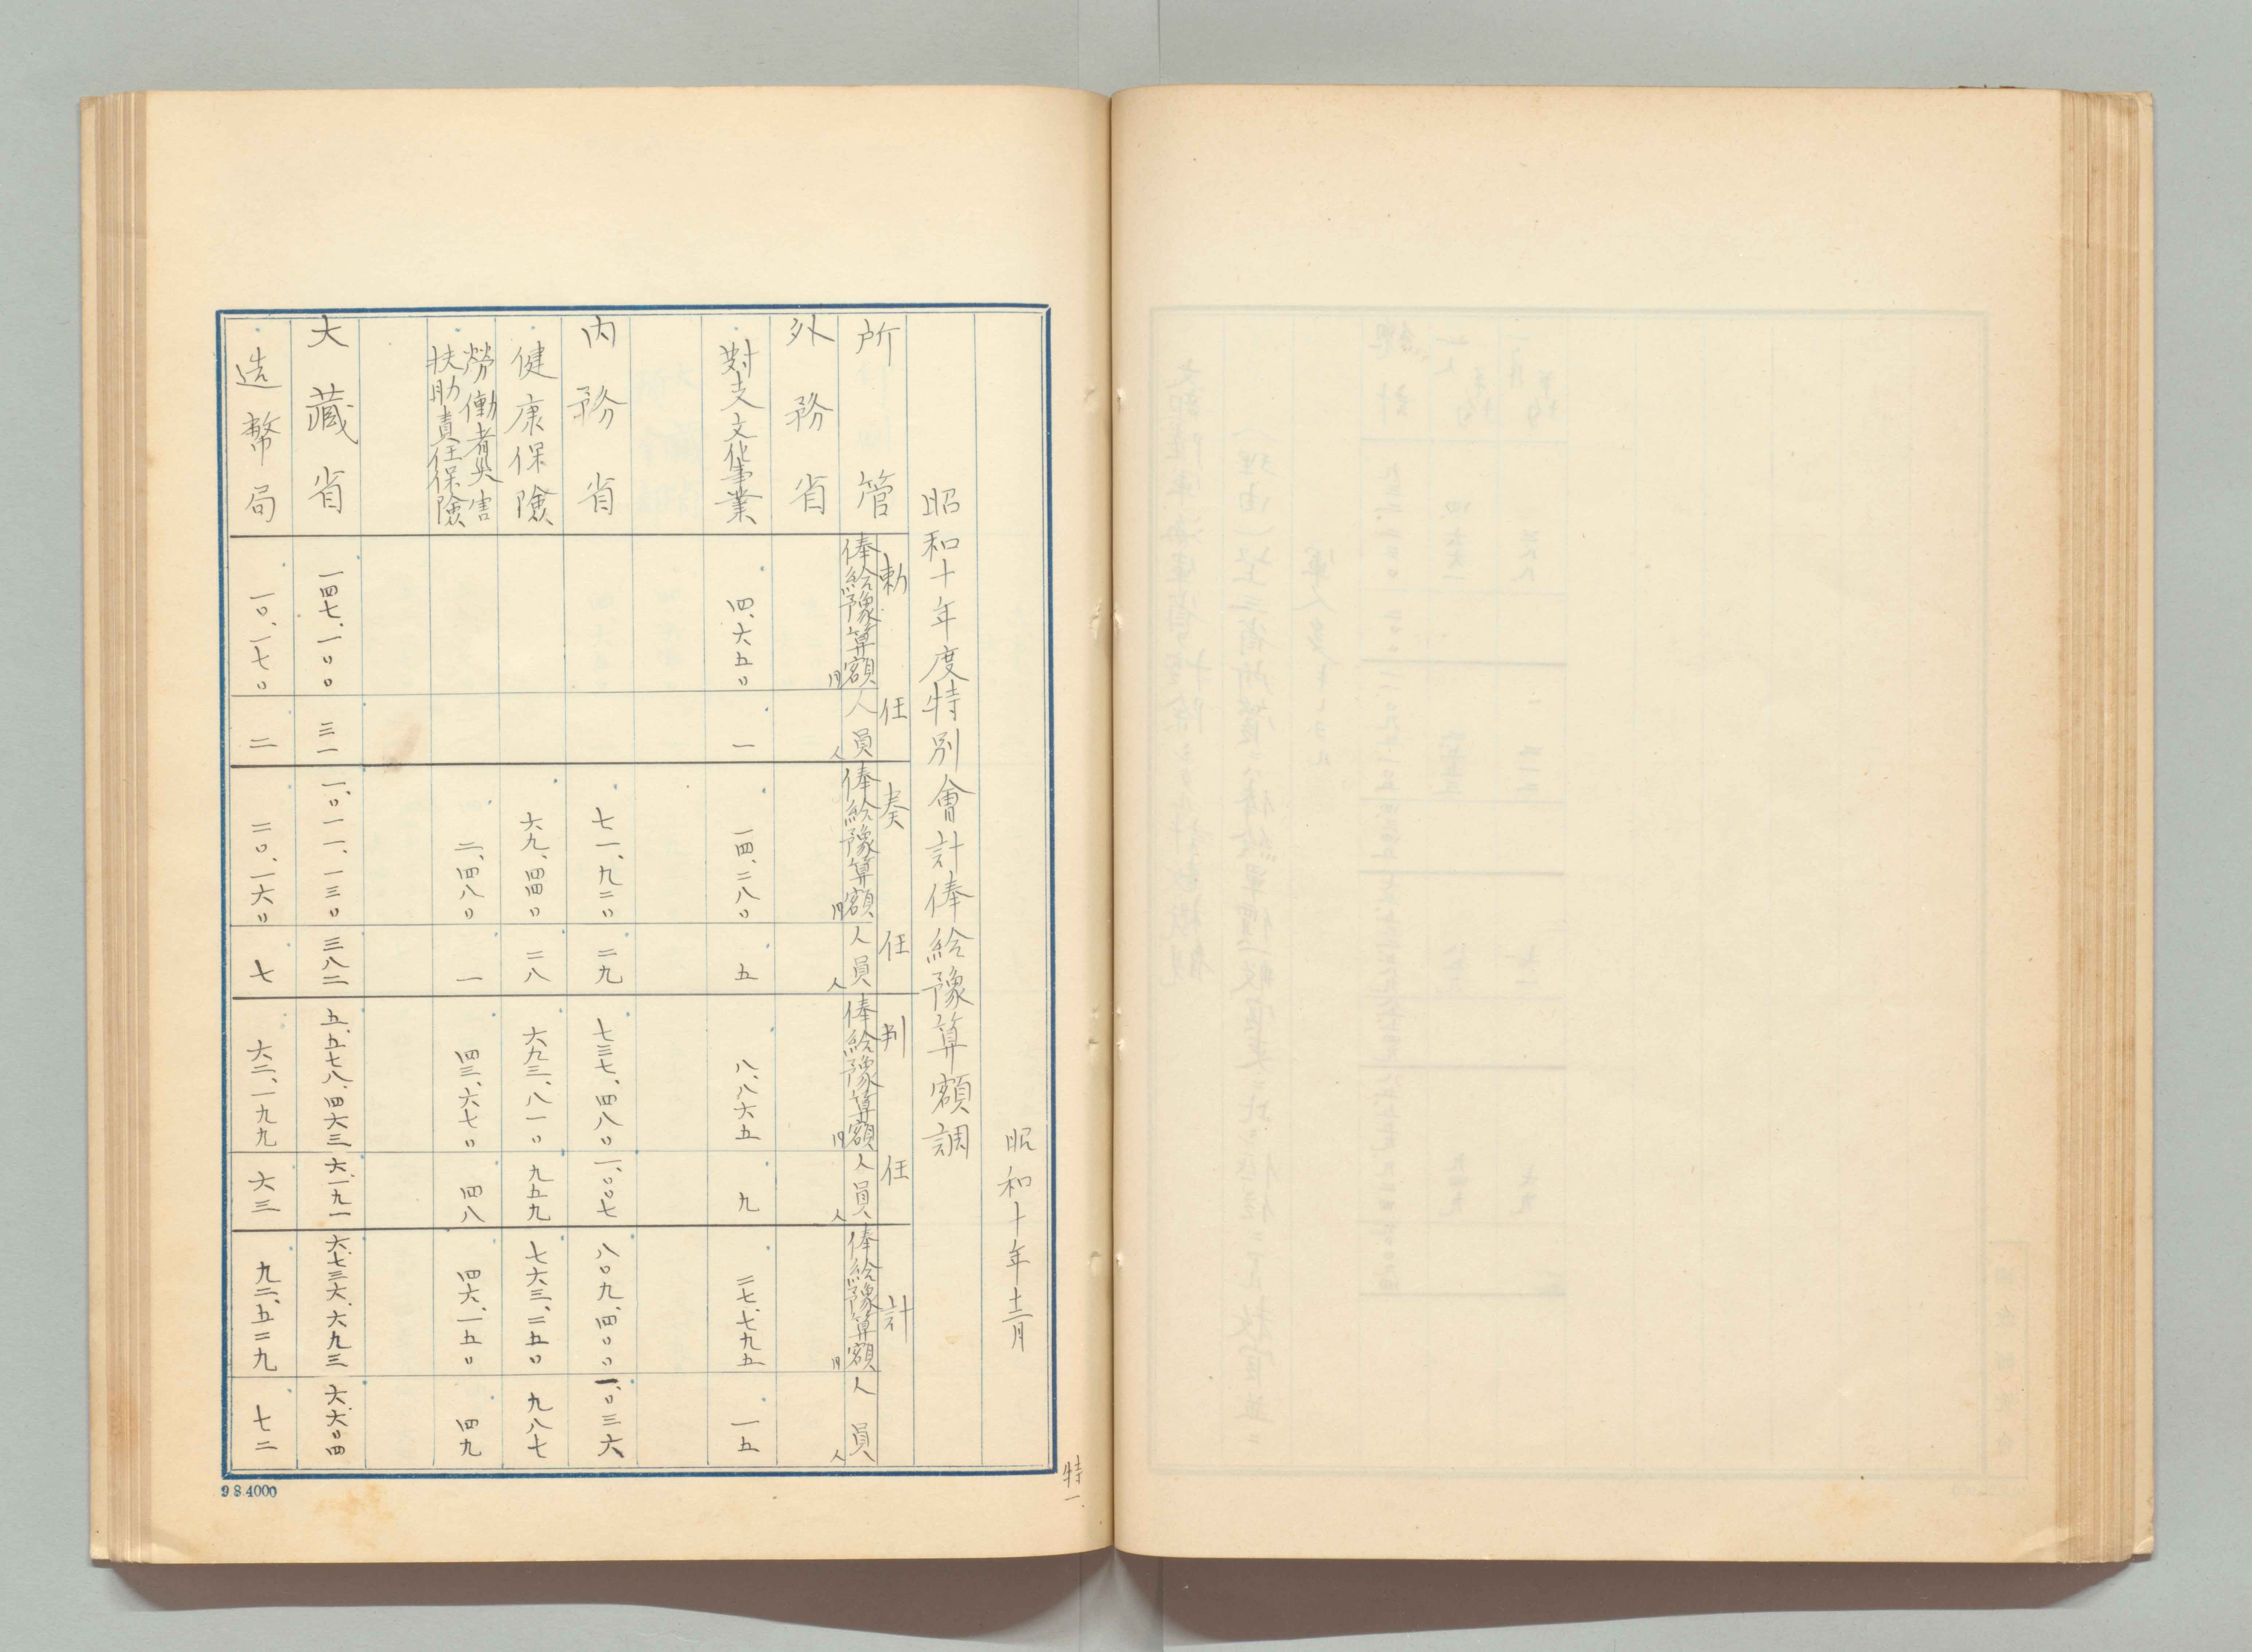 昭和十年十二月
昭和十年度特別會計俸給豫算額調
勅任 奏任 判任 計
所管 俸給豫算額 円 人員 人 俸給豫算額 円 人員 人 俸給豫算額 円 人員 人 俸給豫算額 円 人員 人
外務省
對支文化事業 四、六五〇 一 一四、二八〇 五 八、八六五 九 二七、七九五 一五
内務省 七一、九二〇 二九 七三七、四八〇 一、〇〇七 八〇九、四〇〇 一、〇三六
健康保險 六九、四四〇 二八 六九三、八一〇 九五九 七六三、二五〇 九八七
勞働者災害
扶助責任保險 二、四八〇 一 四三、六七〇 四八 四六、一五〇 四九
大藏省 一四七、一〇〇 三一 一、〇一一、一三〇 三八二 五、五七八、四六三 六、一九一 六、七三六、六九三 六、六〇四
造幣局 一〇、一七〇 二 二〇、一六〇 七 六二、一九九 六三 九二、五二九 七二
特一
98.4000